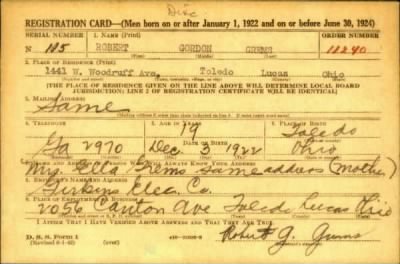 Disc.
REGISTRATION CARD—(Men born on or after January 1, 1922 and on or before June 30, 1924)
SERIAL NUMBER 1. NAME (Print) ORDER NUMBER
N 105 ROBERT GORDON GREMS 11840
(First) (Middle) (Last)
2. PLACE OF RESIDENCE (Print)
1441 W. Woodruff Ave, Toledo Lucas Ohio
[THE PLACE OF RESIDENCE GIVEN ON THE LINE ABOVE WILL DETERMINE LOCAL BOARD
JURISDICTION; LINE 2 OF REGISTRATION CERTIFICATE WILL BE IDENTICAL]
3. MAILING ADDRESS
Same
4. TELEPHONE 5. AGE IN YEARS 6. PLACE OF BIRTH
19 Toledo
DATE OF BIRTH
Ga 2970 Dec 3 1922 Ohio
7. NAME AND ADDRESS OF PERSON WHO WILL ALWAYS KNOW YOUR ADDRESS
Mrs. Ella Grems Same address (mother)
8. EMPLOYER'S NAME AND ADDRESS
Elec. Co.
2056 Canton Ave Toledo Lucas Ohio
I AFFIRM THAT I HAVE VERIFIED ABOVE ANSWERS AND THAT THEY ARE TRUE.
D. S. S. Form 1
(Revised 6-1-42)
Robert G. Grems